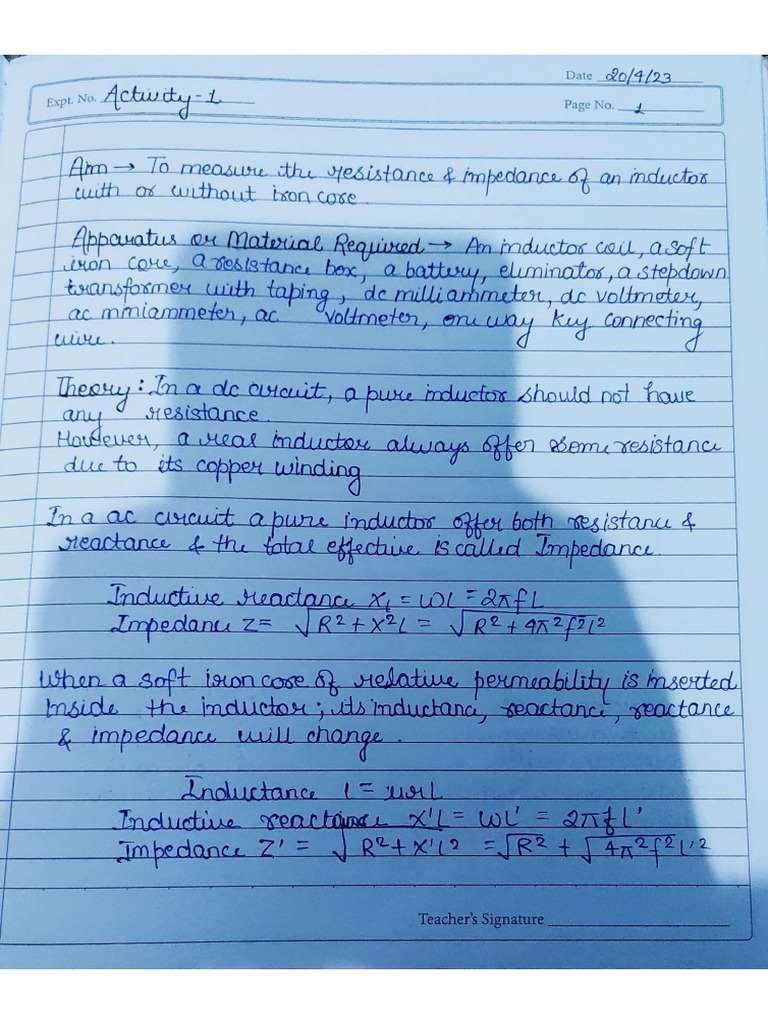 Date 20/4/23
Expt. No. Activity-1
Page No. 1
Aim → To measure the resistance & impedance of an inductor
with or without iron core
Apparatus or Material Required → An inductor coil, a soft
iron core, a resistance box, a battery, eliminator, a stepdown
transformer with taping, dc milliammeter, dc voltmeter,
ac mmiammeter, ac voltmeter, one way key connecting
wire.
Theory: In a dc circuit, a pure inductor should not have
any resistance.
However, a real inductor always offer some resistance
due to its copper winding
In a ac circuit a pure inductor offer both resistance &
reactance & the total effective is called Impedance.
Inductive reactance XL = WL = 2πfL
Impedance Z = √R²+X²L = √R²+4π²f²l²
When a soft iron core of relative permeability is inserted
Inside the inductor; its inductanc, reactance, reactance
& impedance will change.
Inductance l = urL
Inductive reactance X'L = WL' = 2πfL'
Impedance Z' = √R²+X'L² = √R² + √4π²f²L'²
Teacher's Signature